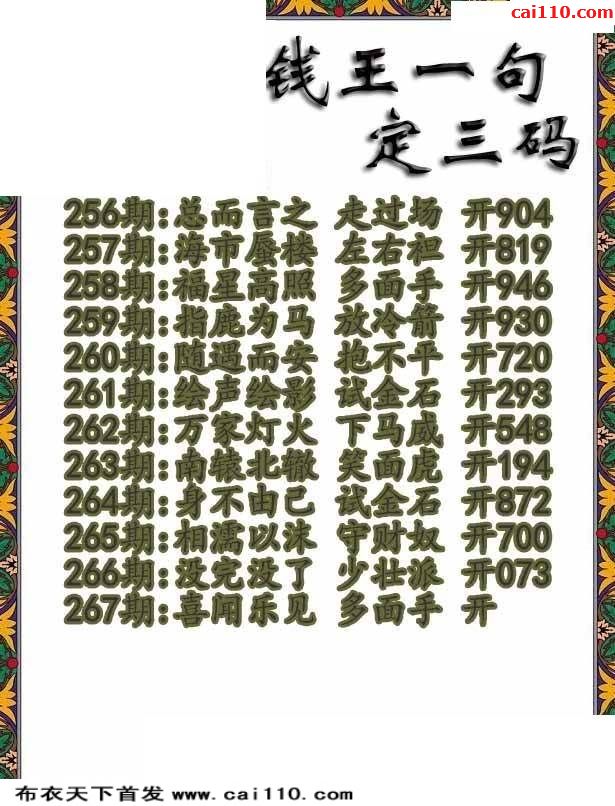 cai110.com
钱王一句
定三码
256期:总而言之 走过场 开904
257期:海市蜃楼 左右袒 开819
258期:福星高照 多面手 开946
259期:指鹿为马 放冷箭 开930
260期:随遇而安 抱不平 开720
261期:绘声绘影 试金石 开293
262期:万家灯火 下马威 开548
263期:南辕北辙 笑面虎 开194
264期:身不由己 试金石 开872
265期:相濡以沫 守财奴 开700
266期:没完没了 少壮派 开073
267期:喜闻乐见 多面手 开
布衣天下首发 www.cai110.com